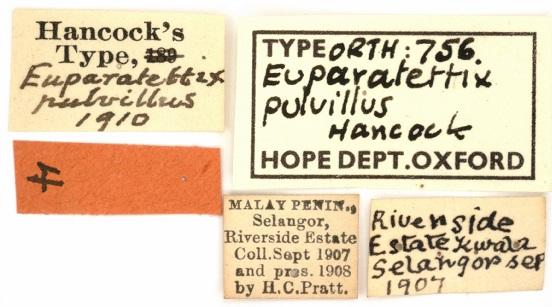 Hancock's
Type, 189
Euparatettix
pulvillus
1910
TYPE ORTH: 756.
Euparatettix
pulvillus
Hancock
HOPE DEPT. OXFORD
H
MALAY PENIN.,
Selangor,
Riverside Estate
Coll. Sept 1907
and pres. 1908
by H. C. Pratt.
Riverside
Estate Kwala
Selangor sep
1907